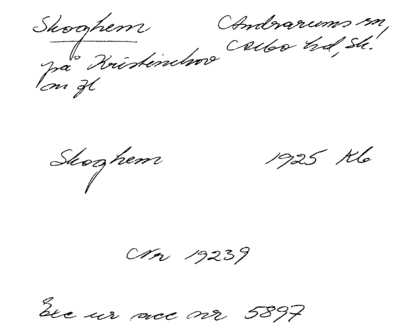 Skoghem Andrarums sn,
på Kristinehov Albo hd, Sk.
m fl
Skoghem 1925 Kb
Nr 19239
Exc ur acc nr 5897